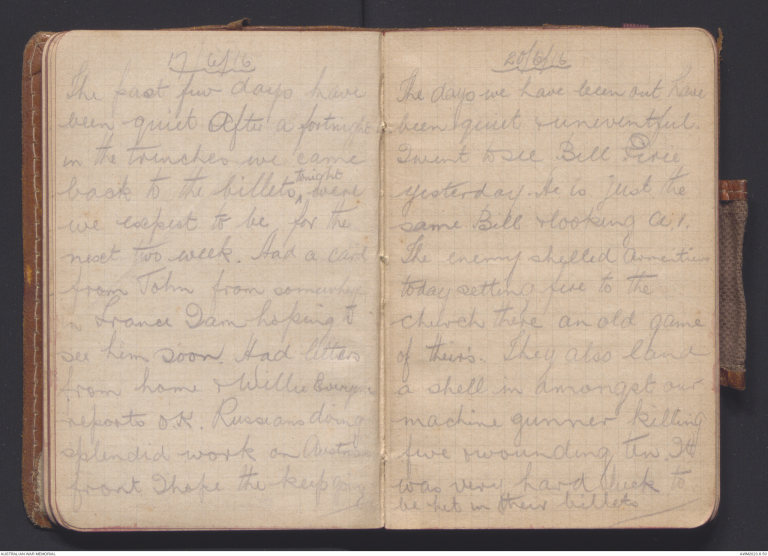 17/6/16
The past few days have
been quiet After a fortnight
in the trenches we came
back to the billets tonight were
we expect to be for the
next two week. Had a card
from John from somewhere
in France I am hoping to
see him soon. Had letters
from home & Willie
reports O.K. Russians doing
splendid work on
front I hope the keep
20/6/16
The days we have been out have
been quiet & uneventful.
I went to see Bill Pirie
yesterday. He is just the
same Bill & looking A1.
The enemy shelled Armentiers
today setting fire to the
church there an old game
of theirs. They also land
a shell in amongst our
machine gunner killing
five & wounding ten. It
was very hard luck to
be hit in their billets
AUSTRALIAN WAR MEMORIAL